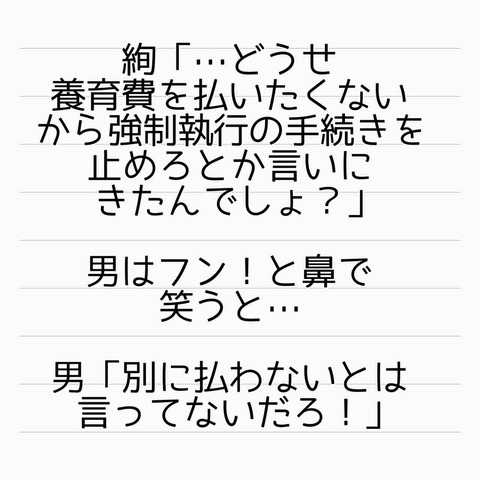 絢「…どうせ
養育費を払いたくない
から強制執行の手続きを
止めろとか言いに
きたんでしょ？」
男はフン！と鼻で
笑うと…
男「別に払わないとは
言ってないだろ！」